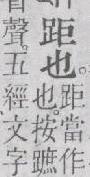 距也。
距當作
也。按蹠
聲。五經文字